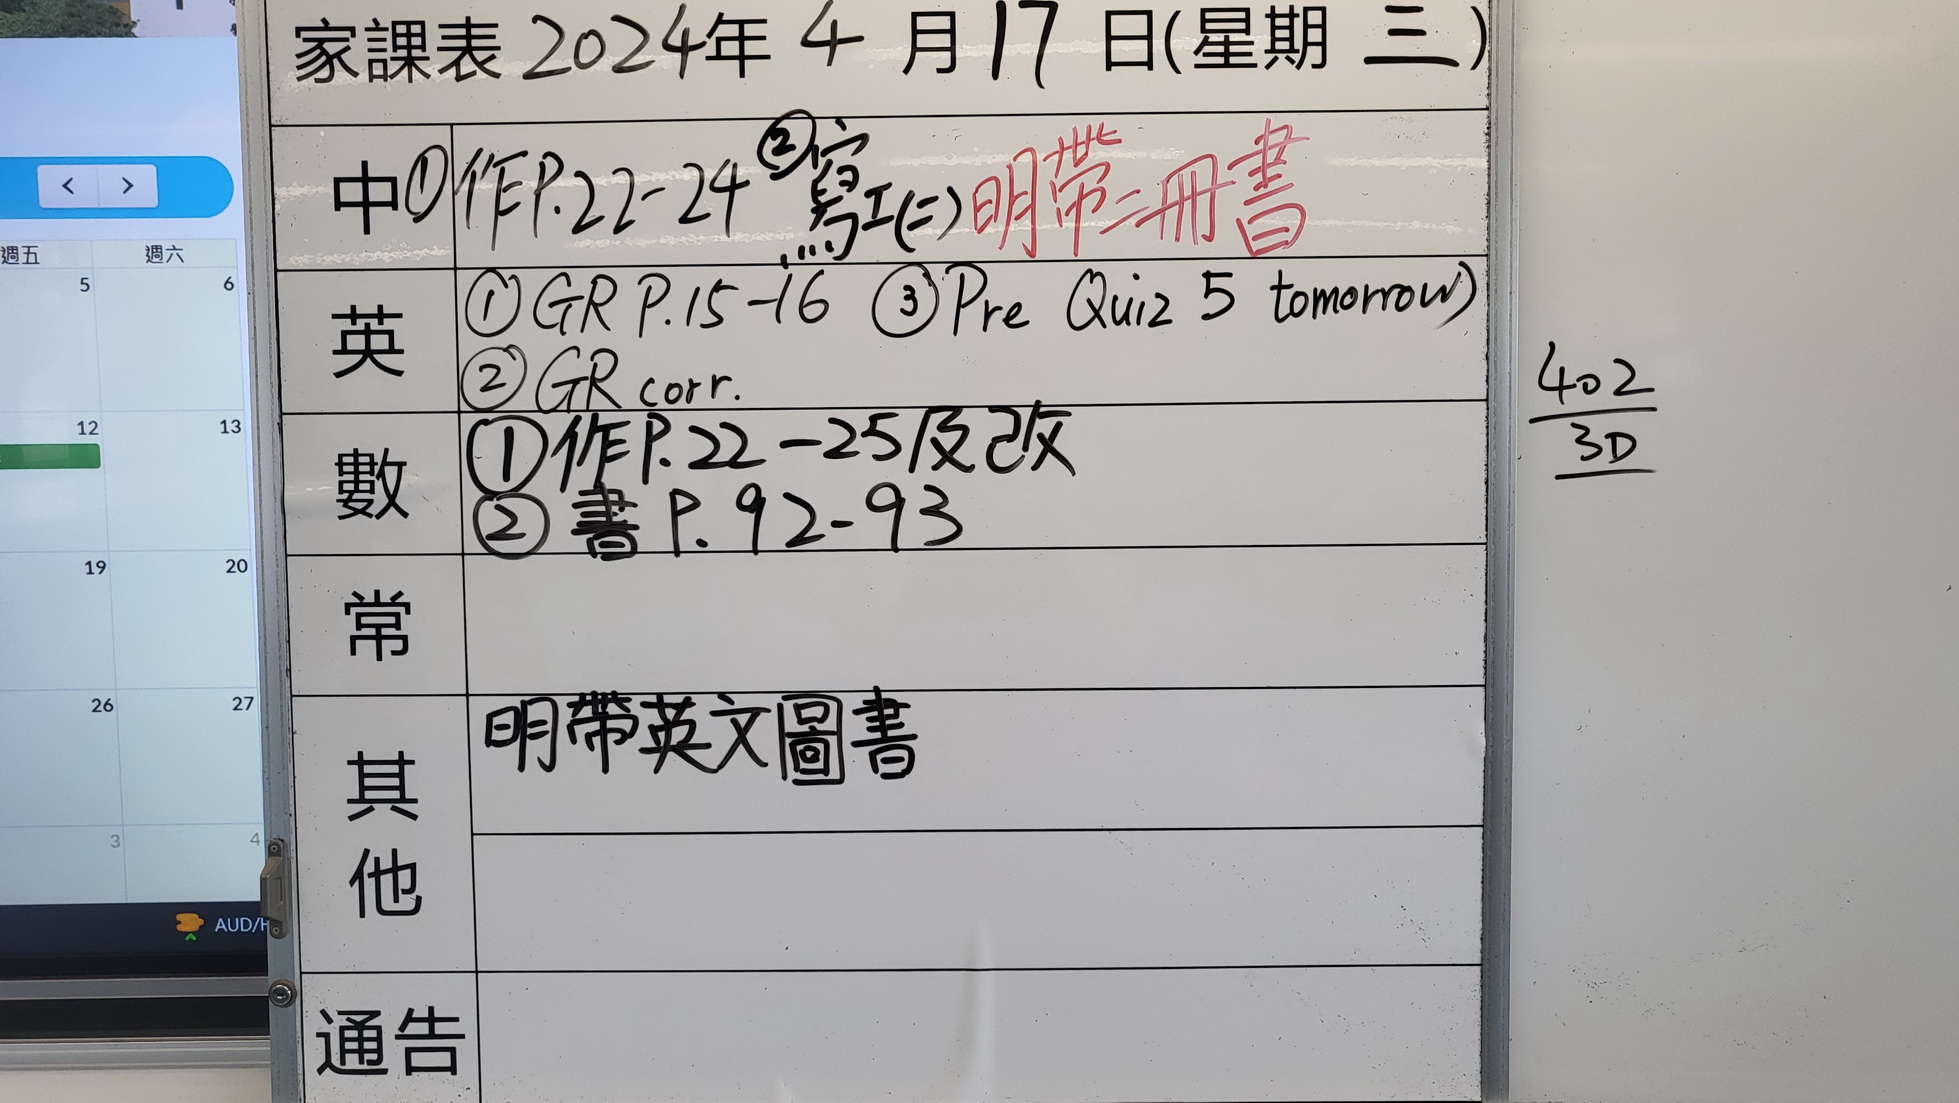 家課表 2024年 4 月 17 日(星期 三)
中 ①作P.22-24 ②寫工(二) 明帶二冊書
英 ①GR P.15-16 ③Pre Quiz 5 tomorrow)
②GR corr.
數 ①作P.22-25及改
②書P.92-93
常
其他 明帶英文圖書
通告
402
3D
< >
週五 週六
5 6
12 13
19 20
26 27
3 4
AUD/H